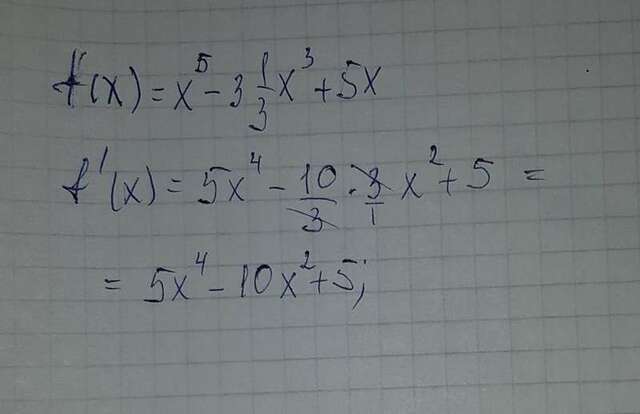 f(x) = x⁵ - 3 1/3 x³ + 5x
f'(x) = 5x⁴ - 10/3 · 3/1 x² + 5 =
= 5x⁴ - 10x² + 5;